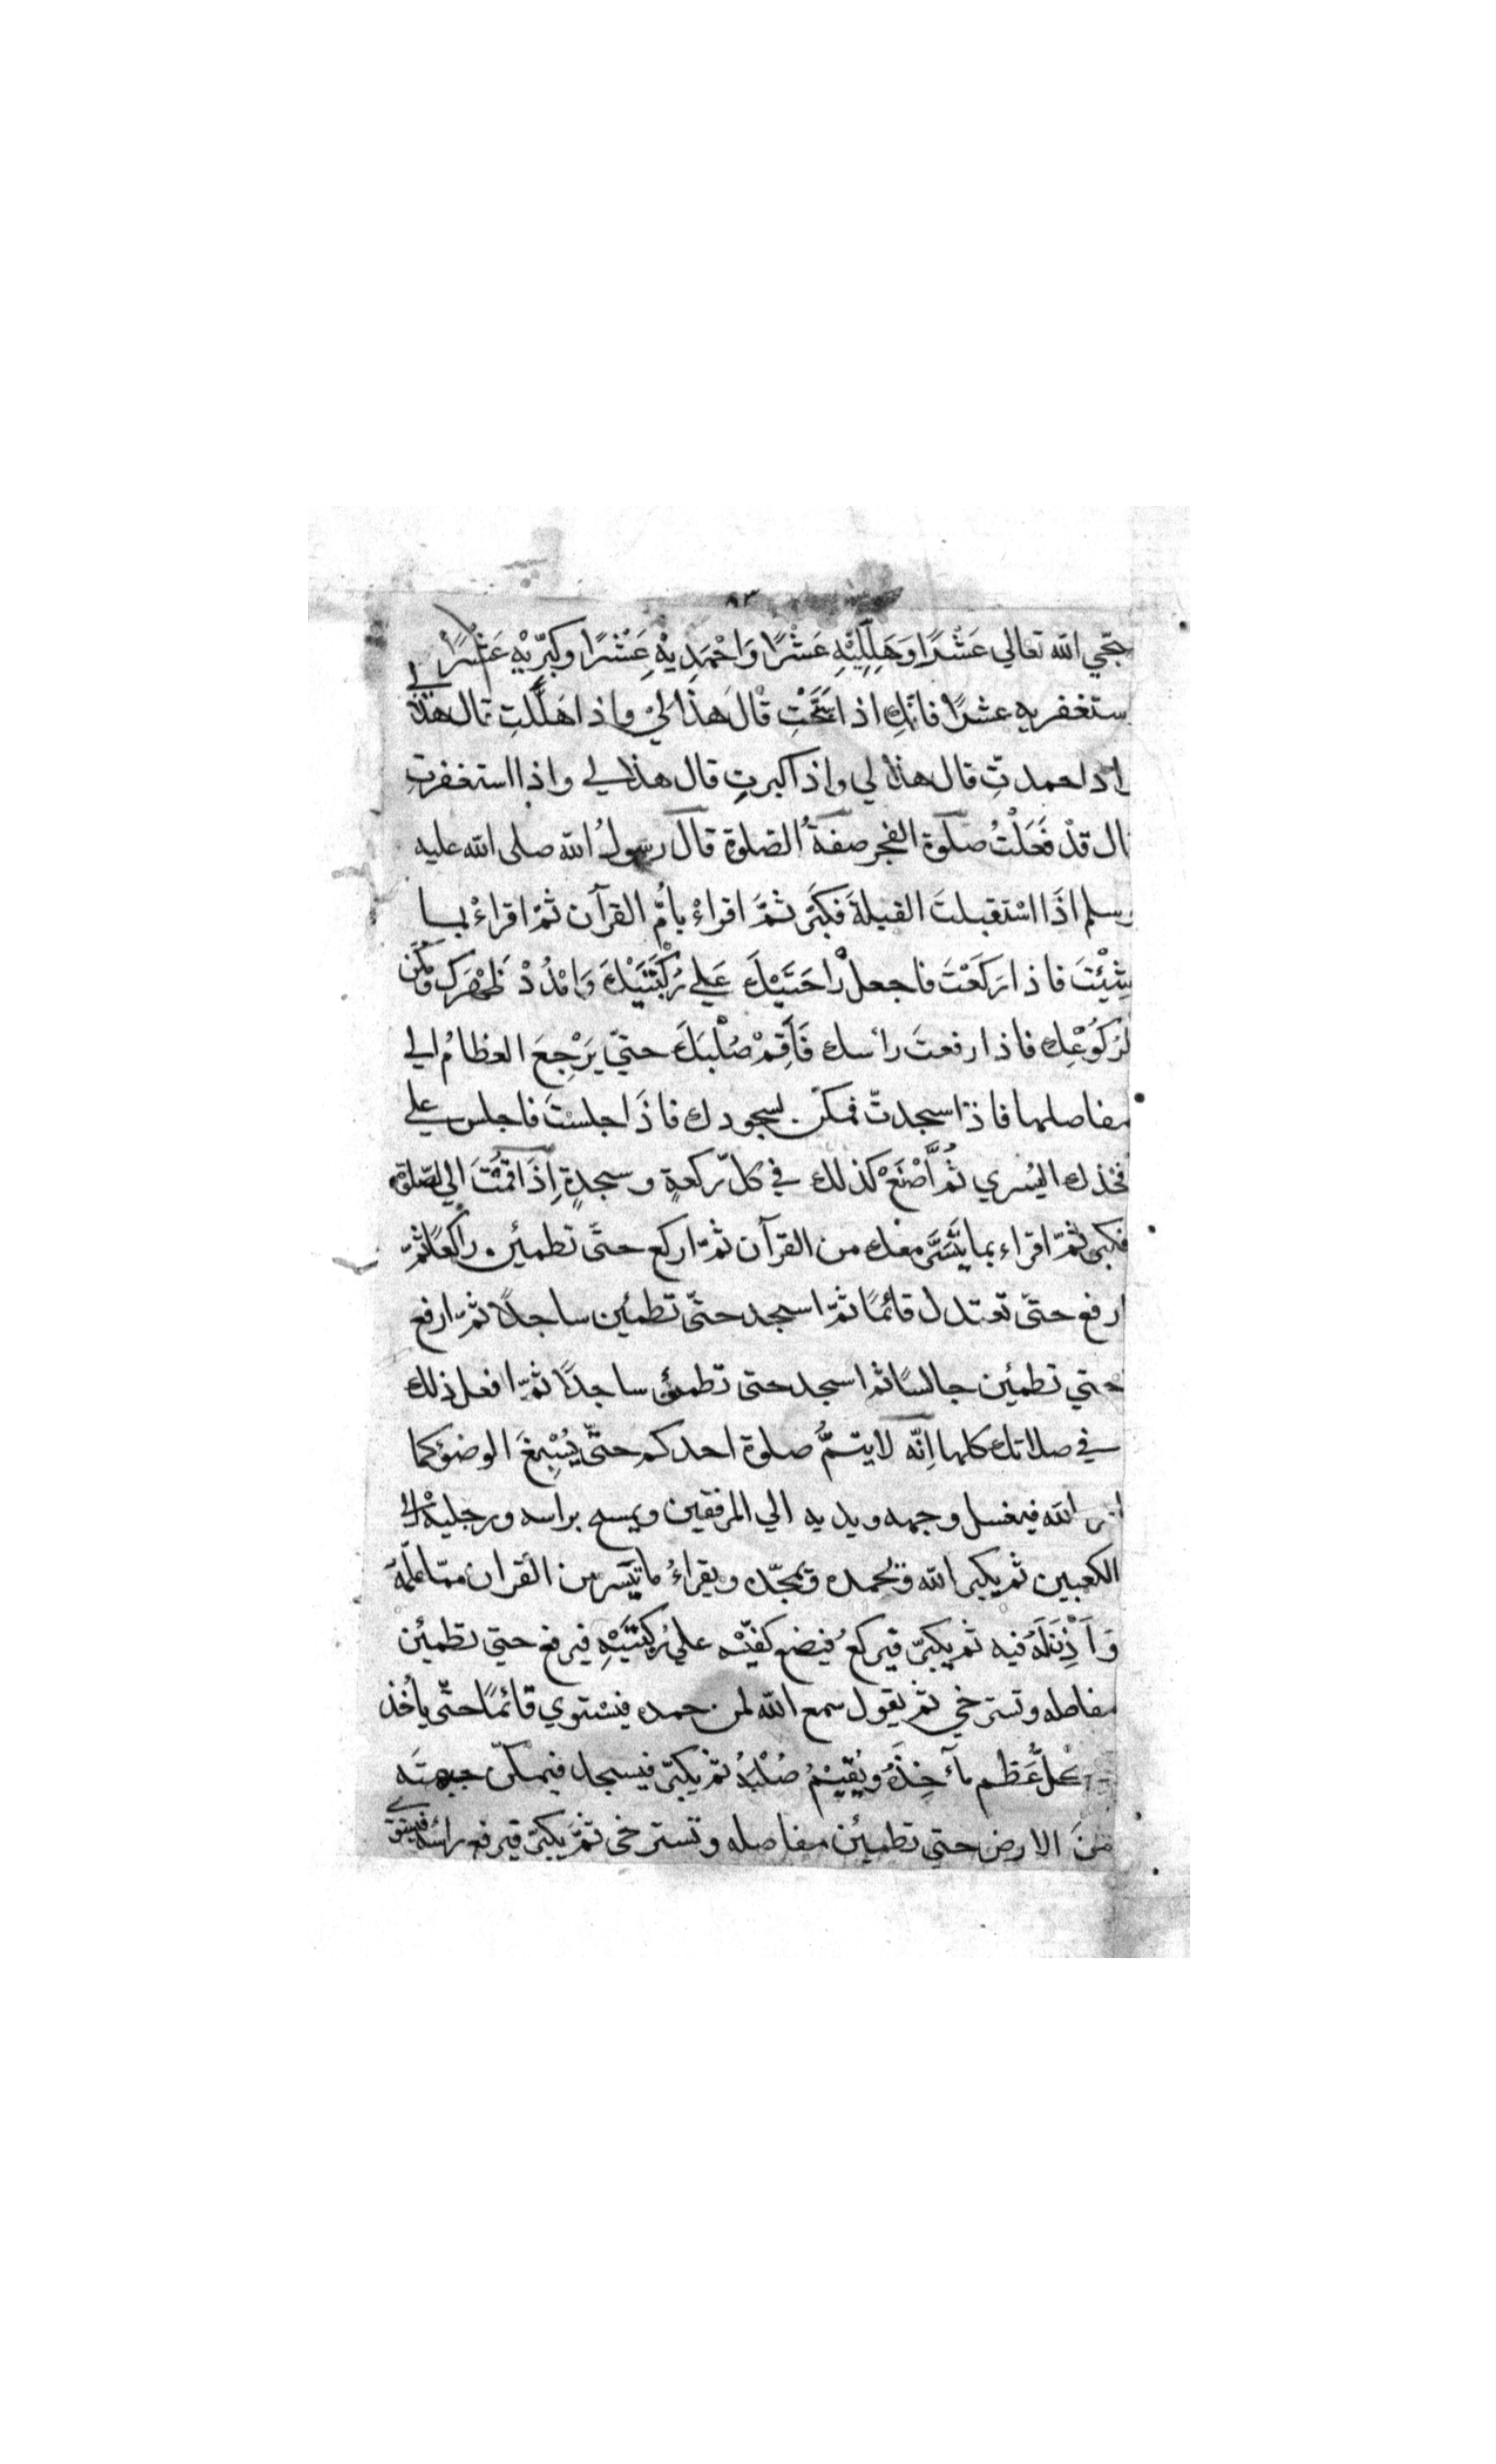 ٨٣
بحّي الله تعالي عَشْرًا وَهَلِلِيْهِ عَشْرًا وَاحْمَدِيْهِ عَشْرًا وكَبِّرِيْهِ عَشْرًا
ستغفريه عشرًا فانّكِ اذا سَبَّحْتِ قالَ هذا لِيْ واذا هَلَّلتِ قال هذا لي
اذا حمدتِّ قال هذا لي واذا كبرتِ قال هذا لي واذا استغفرتِ
ال قدْ فَعَلْتُ صلوة الفجر صفةُ الصّلوة قال رسولُ الله صلى الله عليه
وسلم اذَا اسْتَقبلتَ القبلةَ فكبّر ثمَّ اقراءْ بامِّ القرآن ثمّ اقراءْ بما
شِئْتَ فاذا رَكَعْتَ فاجعلْ رَاحَتَيْكَ عَلي رُكْبَتَيْكَ وَامْدُدْ ظَهْرَك ومَكِّن
لِرُكُوْعِك فاذا رفعتَ رأسك فَأَقِمْ صُلْبَكَ حتيّ يَرْجِعَ العظامُ الي
مفاصلها فاذا سجدتّ فمكّن لسجودك فاذَا جلسْتَ فاجلس علي
فخذك اليُسري ثُمَّ اصْنَعْ كذلك في كلّ ركعةٍ وسجدةٍ اِذَا قمْتَ الي الصّلوة
فكبر ثمّ اقراء بما تَيَسَّرَ معك من القرآن ثمّ اركع حتّى تطمئن راكعًا ثمّ
ارفع حتّى تعتدل قائمًا ثمّ اسجد حتّى تطمئن ساجدًا ثمّ ارفع
حتي تطمئن جالسًا ثم اسجد حتى تطمئن ساجدًا ثمّ افعل ذلك
في صلاتك كلها اِنّه لايتمُّ صلوة احدكم حتّى يُسْبِغَ الوضوء كما
امر الله فيغسل وجهه ويديه الي المرفقين ويمسح براسه ورجليْه الي
الكعبين ثم يكبر الله ويحمده ويمجّده ويقراءُ ما تيسّر من القران ممّا علّمه
وَاَذِنَ لَهُ فيه ثم يكبّر فيركعُ فيضع كفيّه علي رُكبَتَيْهِ فيرفع حتي تطمئن
مفاصله وتسترخي ثم يقول سمع الله لمن حمده فيستوي قائمًا حتّى ياخُذ
كلُّ عَظم مأخِذَهُ ويُقيْمُ صُلْبَهُ ثم يكبّر فيسجد فيمكّن جبهتَه
منَ الارض حتي تطمئن مفاصله وتسترخى ثمَّ يكبّر فيرفع راسه فيستوي